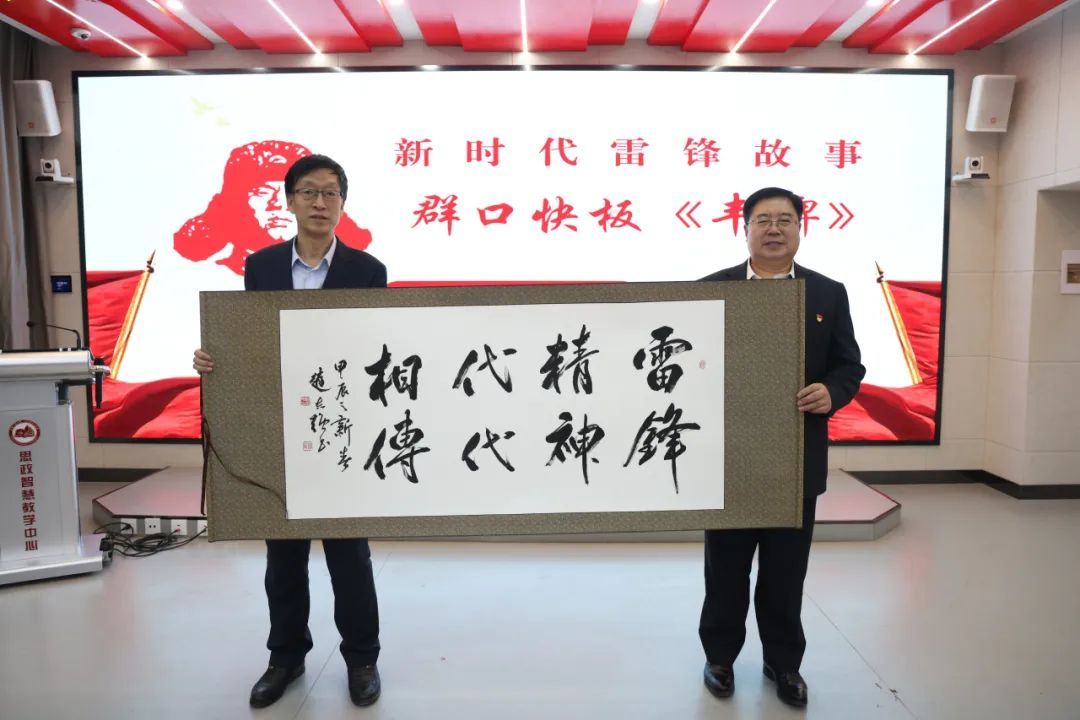 新时代雷锋故事
群口快板《丰碑》
雷鋒
精神
代代
相傳
甲辰之新春
趙
思政智慧教学中心